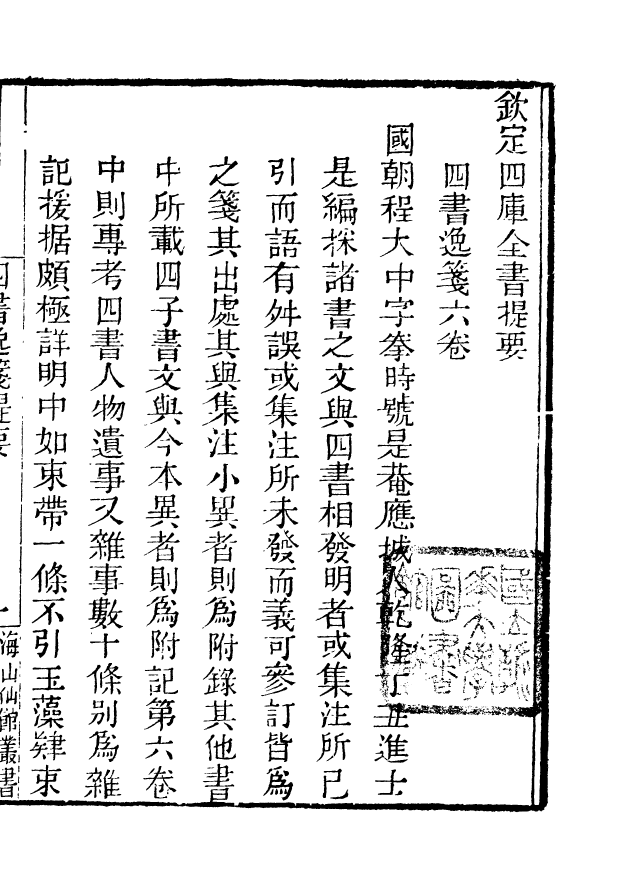 欽定四庫全書提要
四書逸箋六卷
國朝程大中字拳時號是菴應城人乾隆丁丑進士
是編採諸書之文與四書相發明者或集注所已
引而語有舛誤或集注所未發而義可參訂皆為
之箋其出處其與集注小異者則為附錄其他書
中所載四子書文與今本異者則為附記第六卷
中則專考四書人物遺事又雜事數十條別為雜
記援据頗極詳明中如束帶一條不引玉藻肄束
四書逸箋提要
一
海山仙館叢書